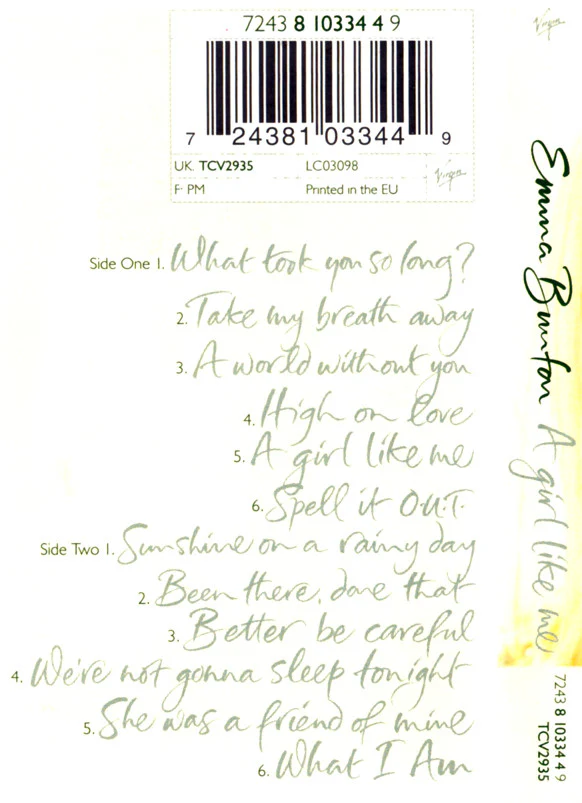 7243 8 10334 4 9
7 24381 03344 9
UK: TCV2935 LC03098
F: PM Printed in the EU
Virgin
Side One 1. What took you so long?
2. Take my breath away
3. A world without you
4. High on love
5. A girl like me
6. Spell it O.U.T.
Side Two 1. Sunshine on a rainy day
2. Been there, done that
3. Better be careful
4. We're not gonna sleep tonight
5. She was a friend of mine
6. What I Am
Virgin
Emma Bunton A girl like me
7243 8 10334 4 9
TCV2935